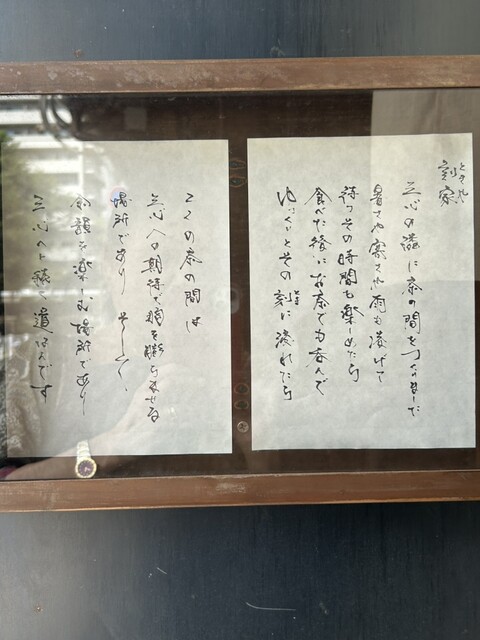 ときや
刻家
三心の隣に茶の間をつくりました
暑さや寒さや雨も凌げて
待つその時間も楽しめたら
食べた後にお茶でも呑んで
ゆっくりとその刻に流れたら
ここの茶の間は
三心への期待で胸を膨らませる
場所であり そして、
余韻を楽しむ場所であり
三心へと続く道なんです